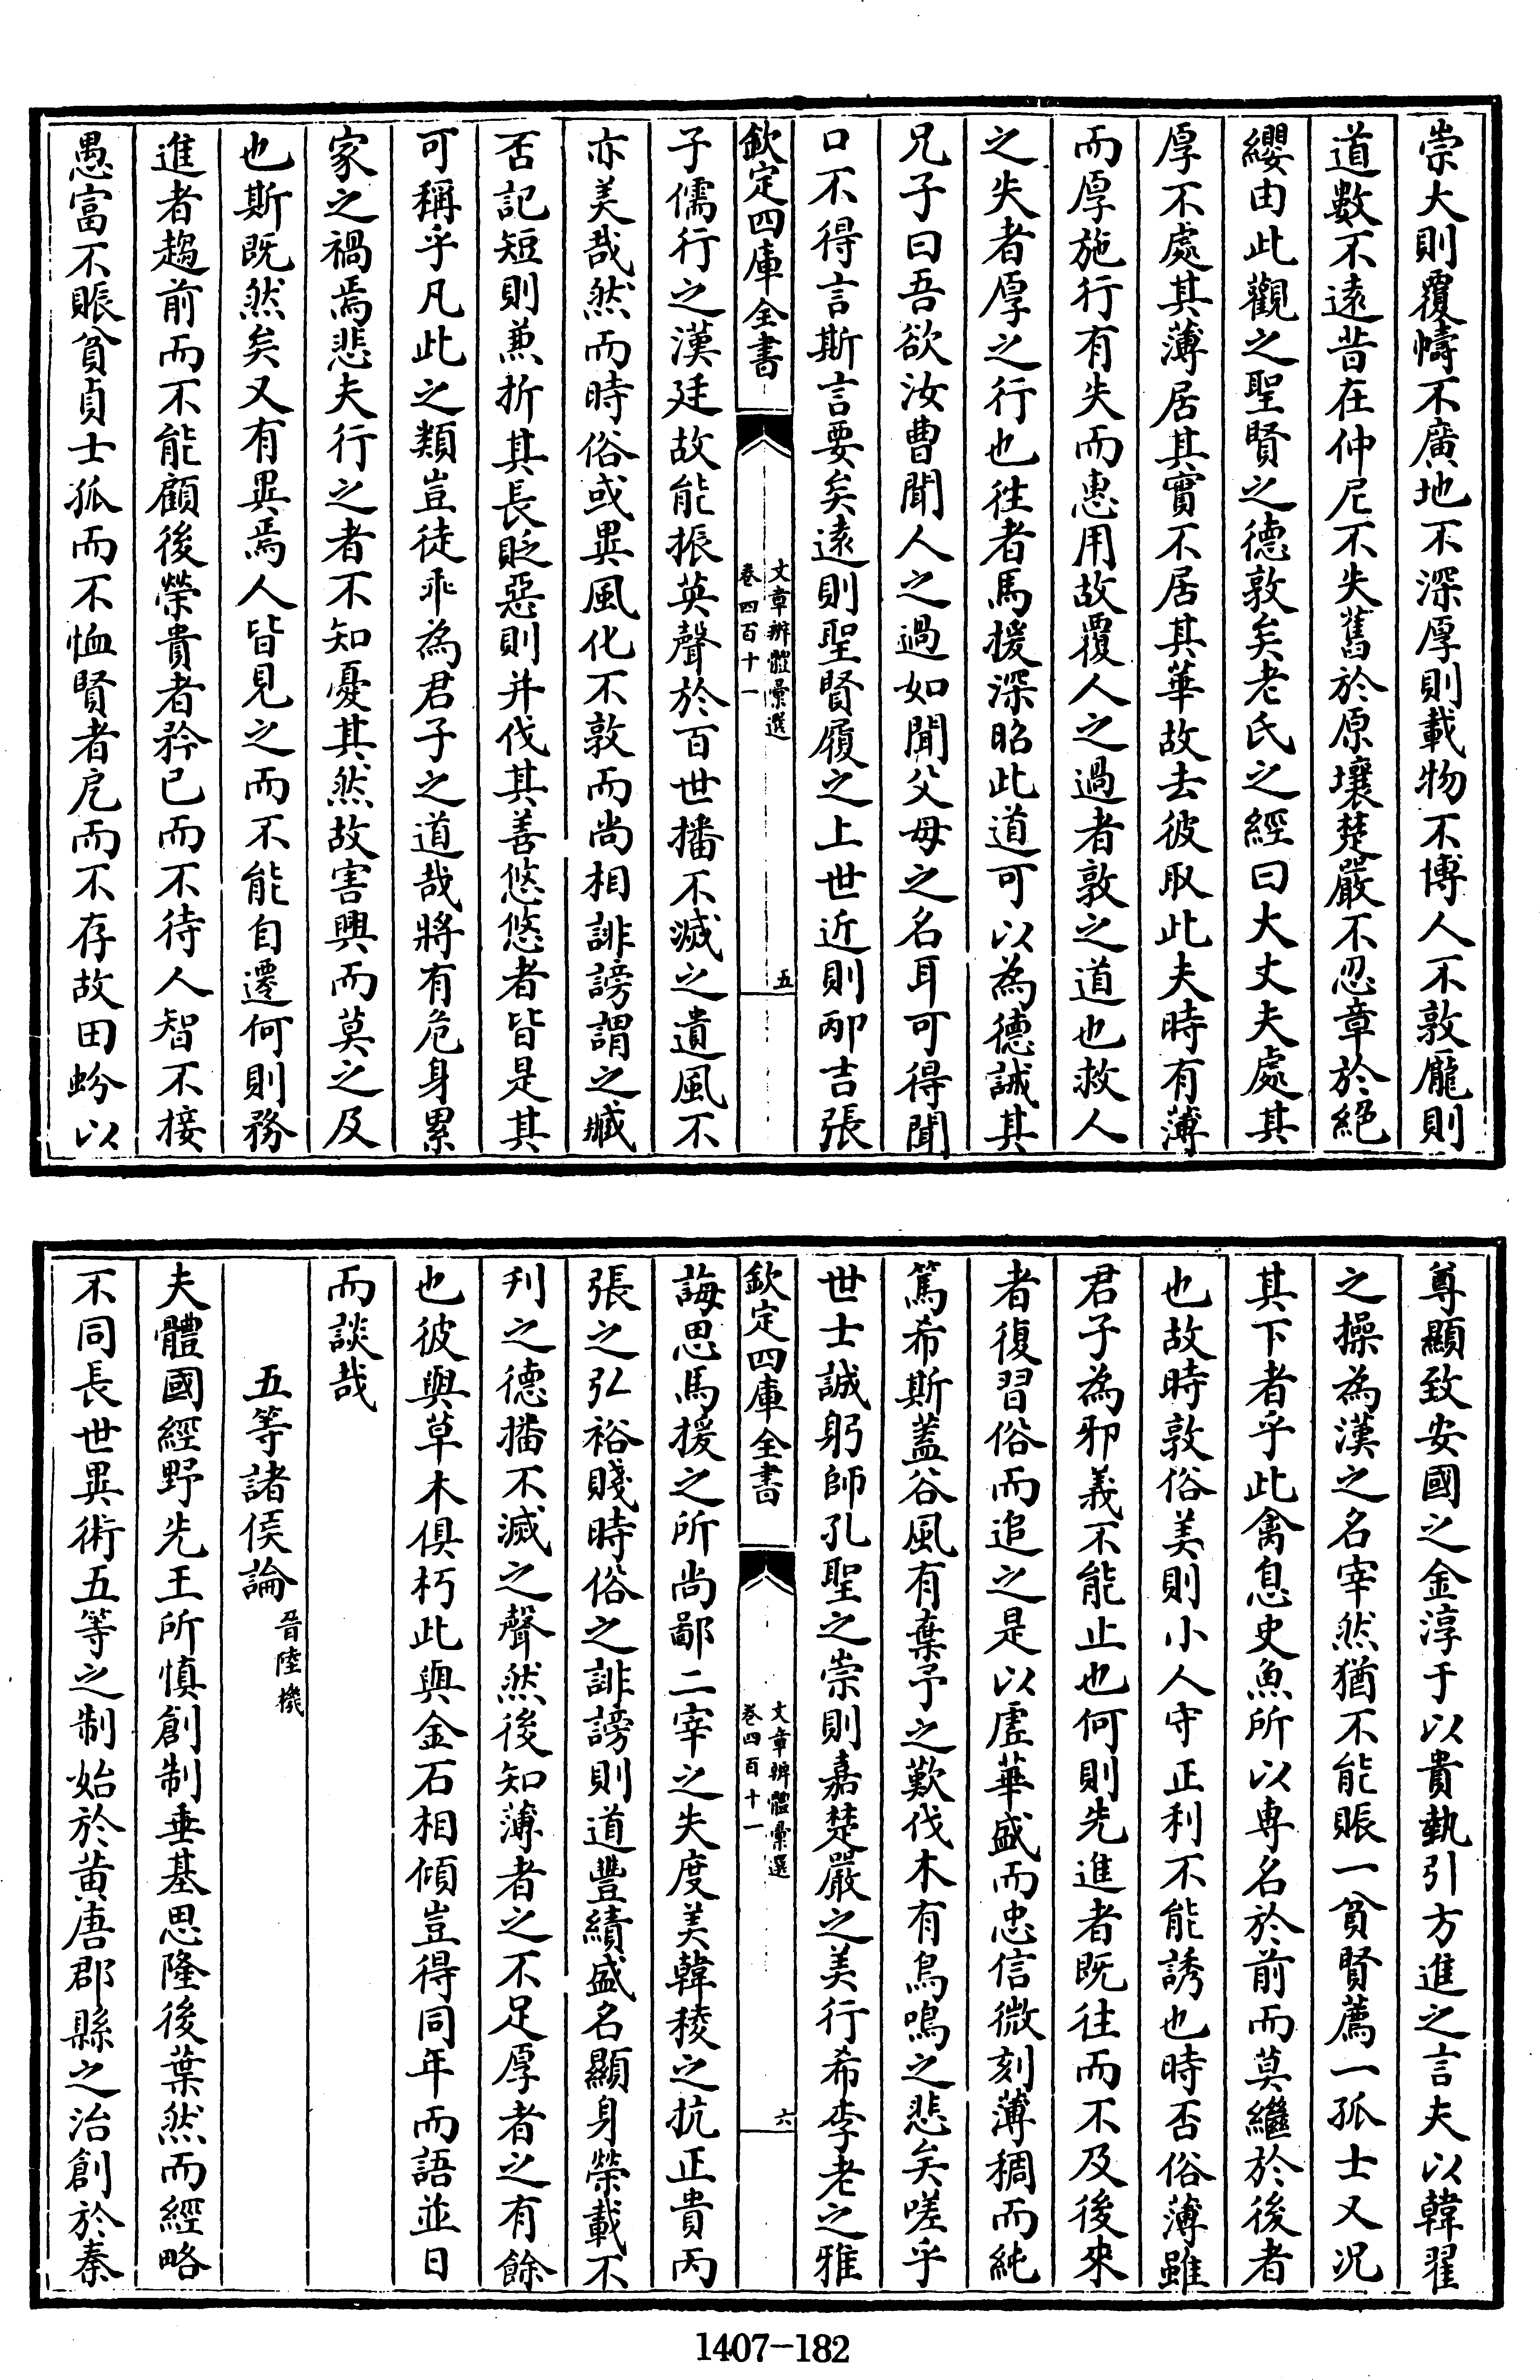 崇大則覆幬不廣地不深厚則載物不博人不敦龎則
道數不遠昔在仲尼不失舊於原壤楚嚴不忍章於絕
纓由此觀之聖賢之德敦矣老氏之經曰大丈夫處其
厚不處其薄居其實不居其華故去彼取此夫時有薄
而厚施行有失而惠用故覆人之過者敦之道也救人
之失者厚之行也往者馬援深昭此道可以為德誡其
兄子曰吾欲汝曹聞人之過如聞父母之名耳可得聞
口不得言斯言要矣遠則聖賢履之上世近則邴吉張
欽定四庫全書
文章辨體彙選
卷四百十一
五
子儒行之漢廷故能振英聲於百世播不滅之遺風不
亦美哉然而時俗或異風化不敦而尚相誹謗謂之臧
否記短則兼折其長貶惡則并伐其善悠悠者皆是其
可稱乎凡此之類豈徒乖為君子之道哉將有危身累
家之禍焉悲夫行之者不知憂其然故害興而莫之及
也斯既然矣又有異焉人皆見之而不能自遷何則務
進者趨前而不能顧後榮貴者矜已而不待人智不接
愚富不賑貧貞士孤而不恤賢者戹而不存故田蚡以
尊顯致安國之金淳于以貴埶引方進之言夫以韓翟
之操為漢之名宰然猶不能賑一貧賢薦一孤士又况
其下者乎此禽息史魚所以專名於前而莫繼於後者
也故時敦俗美則小人守正利不能誘也時否俗薄雖
君子為邪義不能止也何則先進者既往而不及後來
者復習俗而追之是以虛華盛而忠信微刻薄稠而純
篤希斯蓋谷風有棄予之歎伐木有鳥鳴之悲矣嗟乎
世士誠躬師孔聖之崇則嘉楚嚴之美行希李老之雅
欽定四庫全書
文章辨體彙選
卷四百十一
六
誨思馬援之所尚鄙二宰之失度美韓稜之抗正貴丙
張之弘裕賤時俗之誹謗則道豐績盛名顯身榮載不
刋之德播不滅之聲然後知薄者之不足厚者之有餘
也彼與草木俱朽此與金石相傾豈得同年而語並日
而談哉
五等諸侯論 晉陸機
夫體國經野先王所慎創制垂基思隆後葉然而經略
不同長世異術五等之制始於黄唐郡縣之治創於秦
1407-182